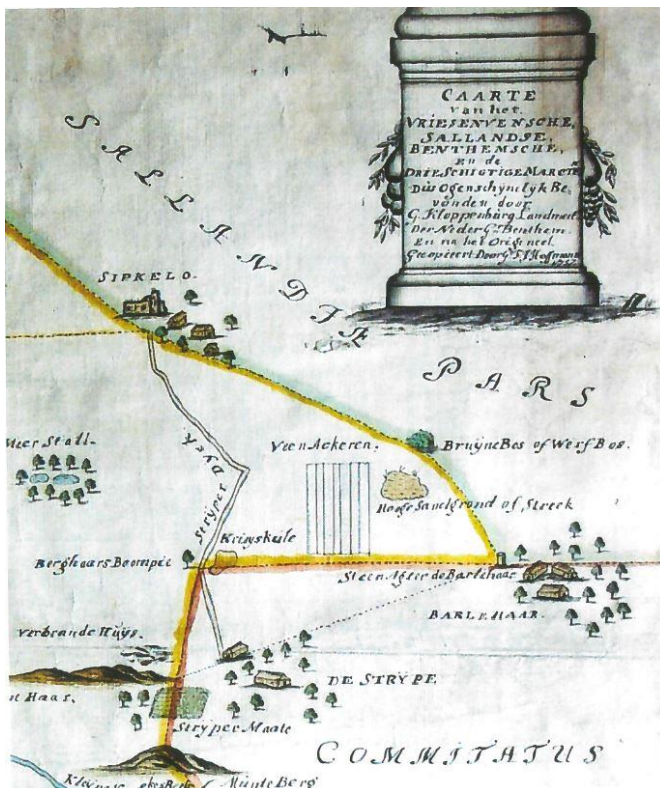 CAARTE
van het
VRIESENVENSCHE,
SALLANDSE,
BENTHEMSCHE,
En de
DRIESCHIGTIGE MARCTE
Dus Ogenschynelyk Be,
vonden door
G. Kloppenburg Landmeet
Der Neder Gr. Benthem.
En na het Origineel
Gecopieert Door
SALLANDSE
PARS
SIPKELO.
Stryper Dyck.
Meer Stall.
Veen Ackeren.
Bruyne Bos of Werf Bos.
Hooge Sandgrond of Streek
Krigskule
Berghaars Boompie
Steen Agter de Barlehaar
BARLEHAAR.
Verbrande Huys.
DE STRYPE
n Haar.
Stryper Maate
COMMITATUS
Munte Berg